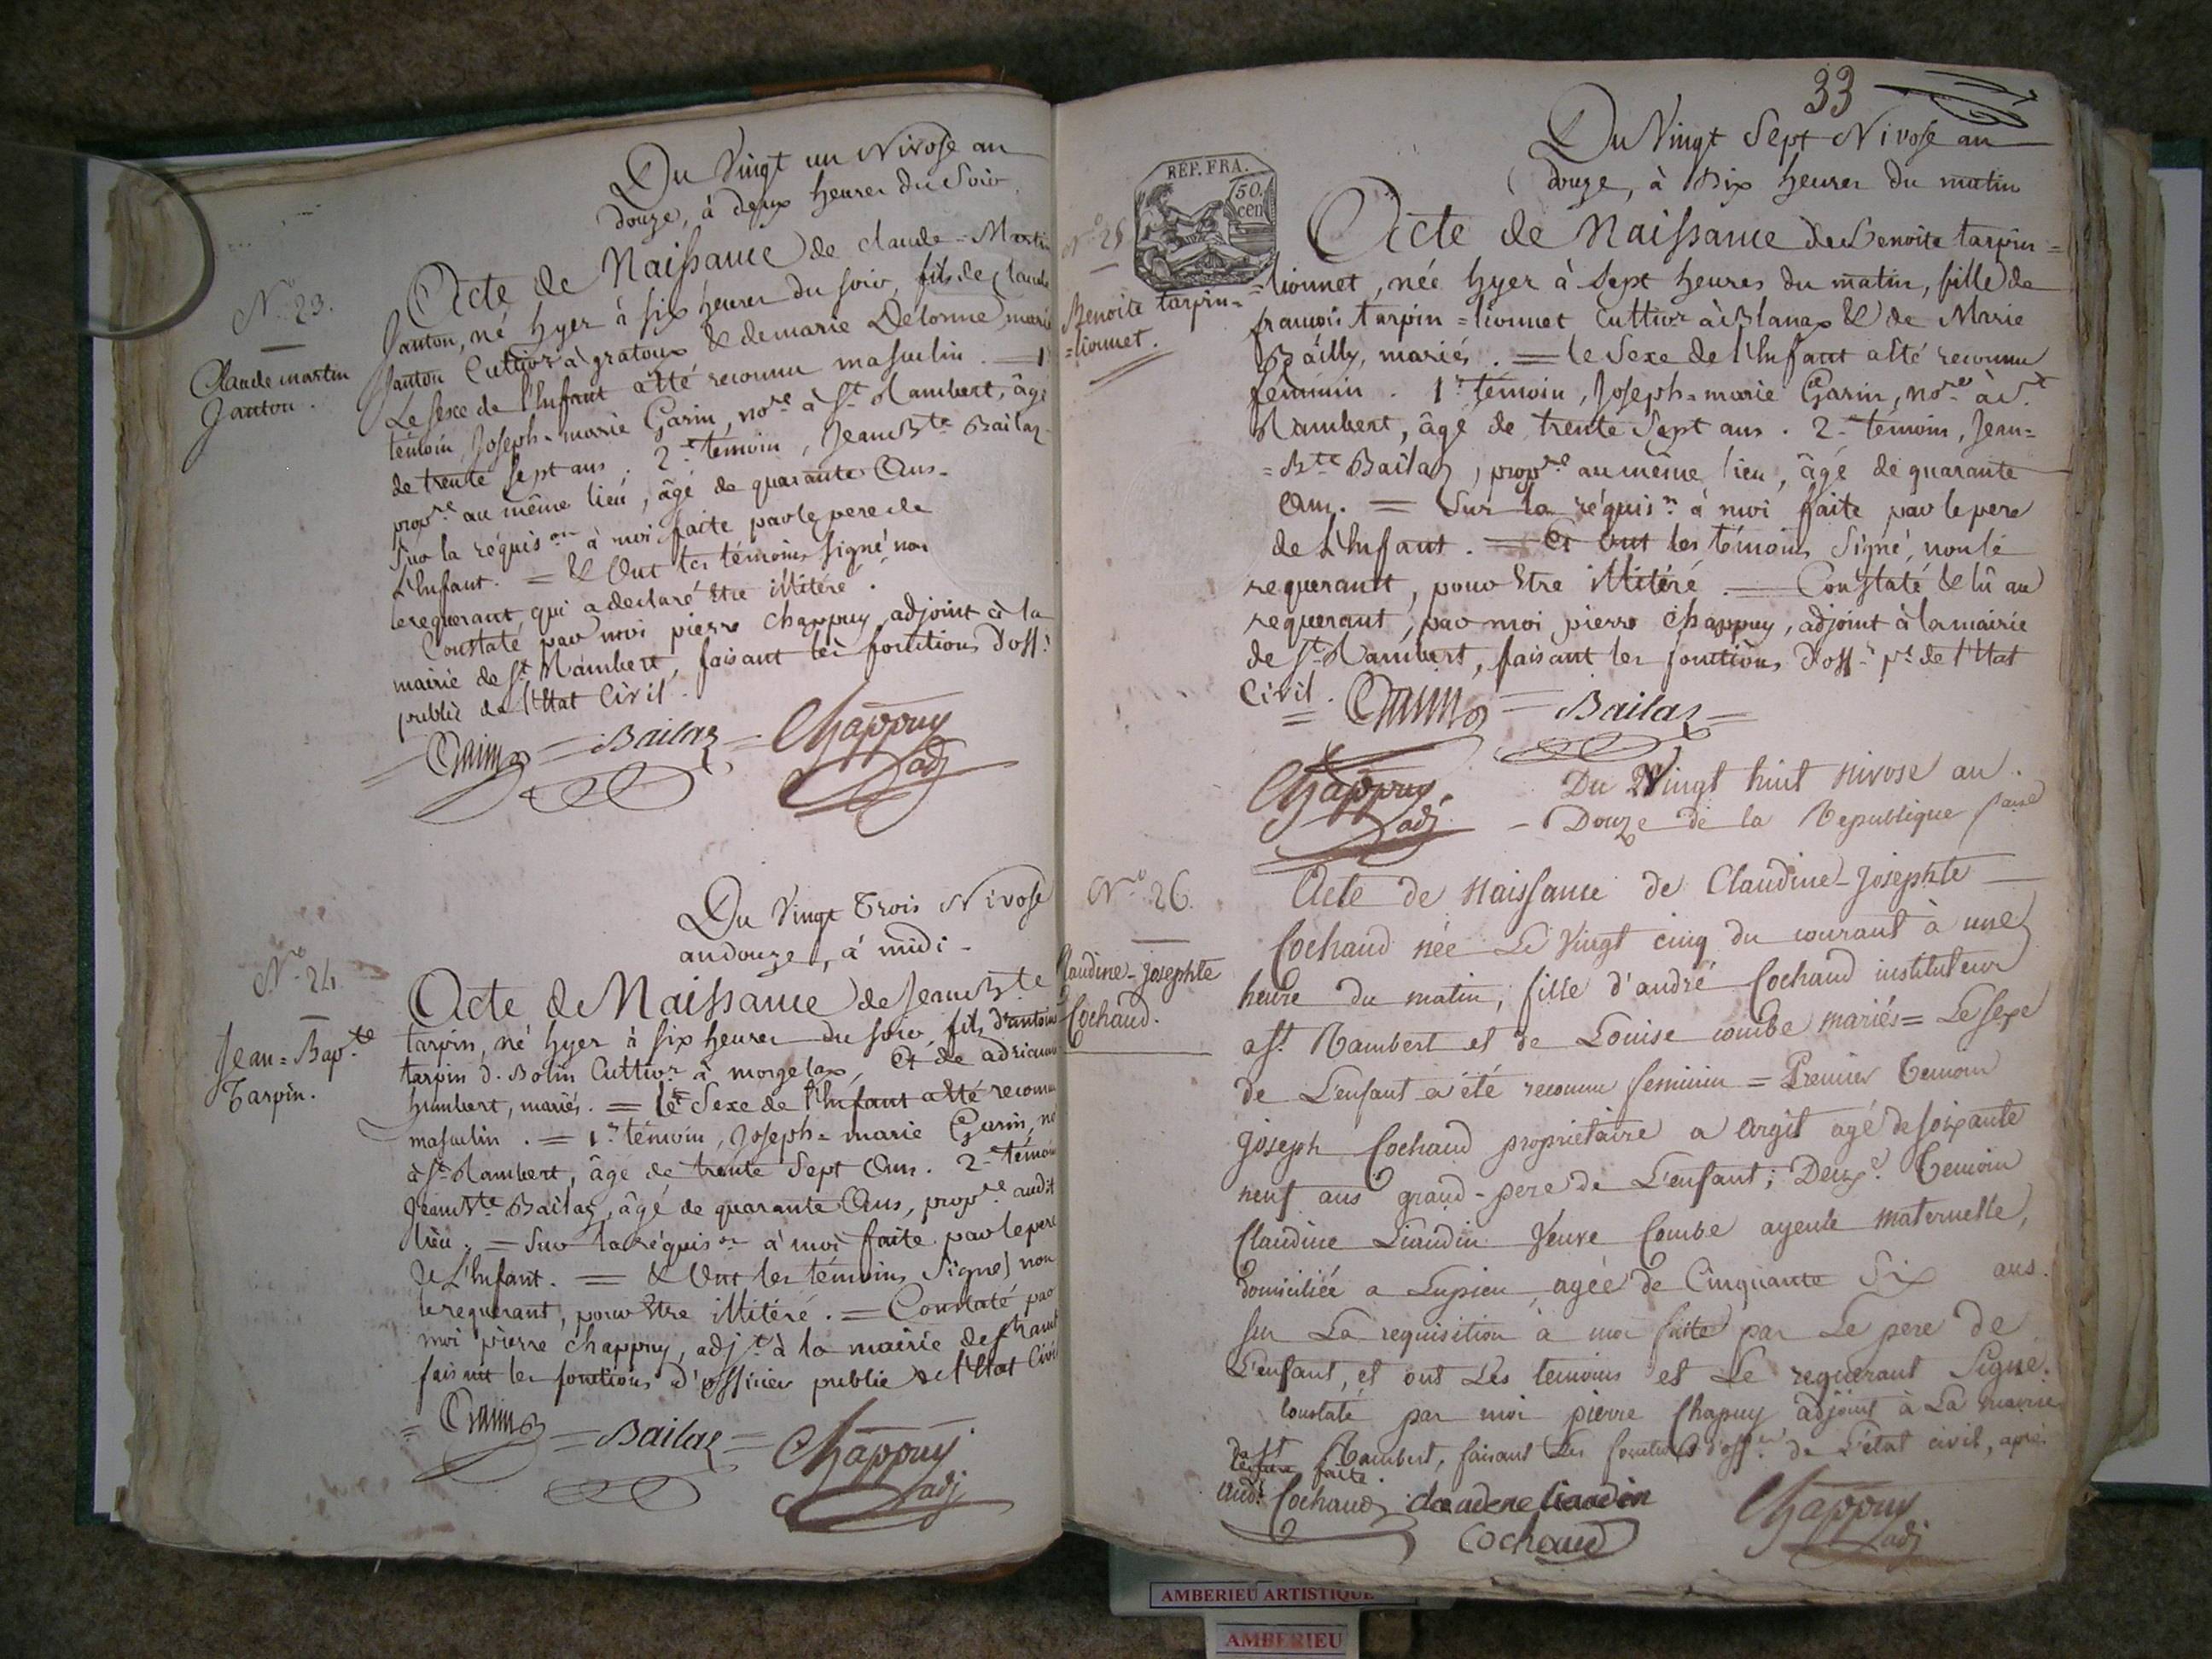 Du Vingt un Nivose an
douze, à deux heures du Soir
N.o 23.
Claude martin
Janton.
Acte de Naissance de claude=Martin
Janton, né hyer à six heures du soir, fils de Claude
Janton Cultivr à gratoux & de marie Delorme, marié
Le sexe de l'Enfant a été reconnu masculin. = 1r
témoin, Joseph=marie Garin, nore à St Rambert, âgé
de trente sept ans. 2e témoin, Jean Bte Bailaz
propre au même lieu, âgé de quarante Ans.
Sur la réquison à moi faite par le pere de
L'Enfant. = & Ont les témoins signé non
le requerant, qui a declaré Etre illitéré.
Constaté par moi pierre Chappuy adjoint à la
mairie de St Rambert, faisant les fonctions d'off.r
public de l'Etat Civil.
= Garin = Bailaz = Chappuy
adj
Du Vingt Trois Nivose
an douze, à midi -
N.o 24.
Jean=Bap.te
Tarpin.
Acte de Naissance de Jean Bte
tarpin, né hyer à six heures du soir, fils d'antoine
tarpin d. Bolin Cultivr à morgelax, Et de adrianne
humbert, mariés. = le Sexe de l'Enfant a été reconnu
masculin. = 1r témoin, Joseph=marie Garin, no
à St Rambert, âgé de trente Sept Ans. 2e témoin
Jean Bte Bailaz, âgé de quarante Ans, propre audit
lieu. = Sur la réquison à moi faite par le pere
de L'Enfant. = & Ont les témoins Signé) non
le requerant, pour Etre illitéré. = Constaté par
moi pierre Chappuy, adjt à la mairie de St Ramb
faisant les fonctions d'officier public de l'Etat Civil
= Garin = Bailaz = Chappuy
adj
33
Du Vingt Sept Nivose an
douze, à Dix heures du matin
REP. FRA.
50.
cen
N.o 25
Benoite tarpin=
=lionnet.
Acte de Naissance de Benoite tarpin=
=lionnet, née hyer à sept heures du matin, fille de
françois tarpin=lionnet Cultivr à Blanax & de Marie
Bailly, mariés. = le Sexe de l'Enfant a été reconnu
féminin. 1r témoin, Joseph=marie Garin, nore à St
Rambert, âgé de trente Sept ans. 2e témoin, Jean=
=Bte Bailaz, propre au même lieu, âgé de quarante
Ans. = Sur la réquis.n à moi faite par le pere
de L'Enfant. = Et Ont les témoins Signé, non le
requerant, pour Etre illitéré. = Constaté & lû au
requerant, par moi pierre Chappuy, adjoint à la mairie
de St Rambert, faisant les fonctions d'off.r p.c de l'Etat
Civil. = Garin = Bailaz =
Chappuy
adj
Du Vingt huit nivose an.
- Douze de la Republique fanse
N.o 26.
Claudine-Josephte
Cochaud.
Acte de Naissance de Claudine-Josephte
Cochaud née Le Vingt cinq du courant à une
heure du matin, fille d'andré Cochaud instituteur
a St. Rambert et de Louise combe mariés = Le sexe
de L'enfant a été reconnu feminin = Premier Temoin
Joseph Cochaud propriétaire a Argit agé de soixante
neuf ans grand-pere de L'enfant; Deuxe. Temoin
Claudine Liaudin Veuve Combe ayeule maternelle,
domiciliée a Lupieu, agée de Cinquante Six ans.
sur La requisition à moi faite par Le pere de
L'enfant, et ont Les temoins et Le requerant Signé.
Constaté par moi pierre Chapuy adjoint à La mairie
de St Rambert, faisant Les fonctions d'offer de L'état civil, après
lecture faite.
And. Cochaud claudene liaudin
Cochaud
Chappuy
adj
AMBERIEU ARTISTIQUE
AMBERIEU